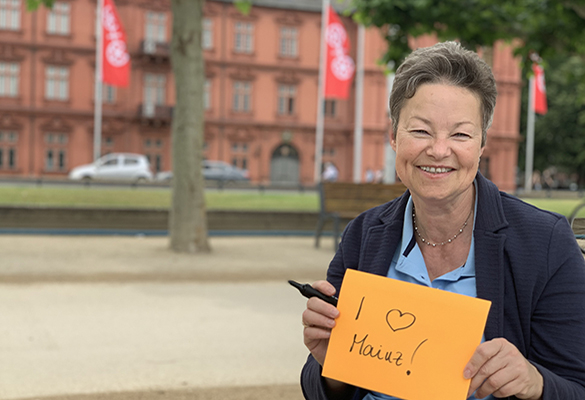 I ♡
Mainz!